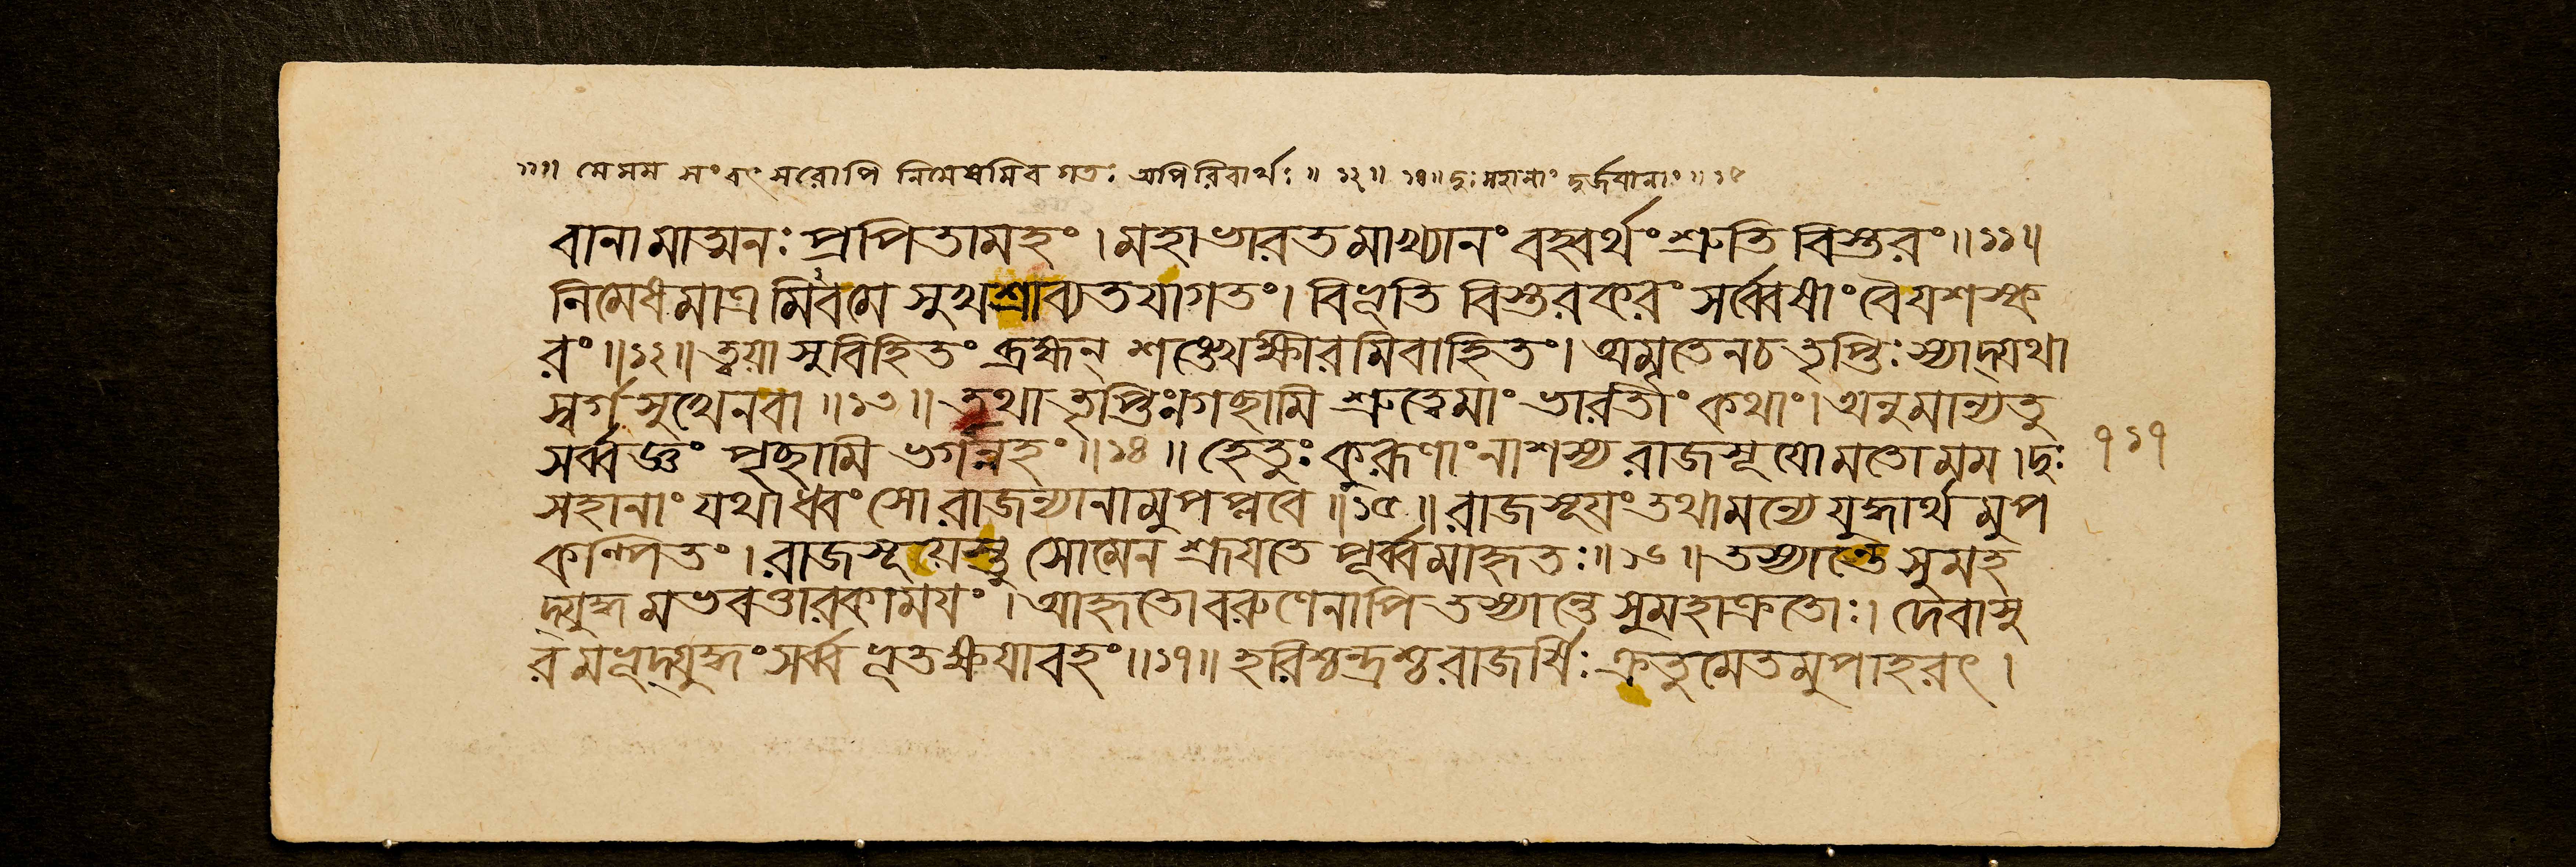 ১১॥ মে মম সংবৎসরোপি নিমেষমিব গতঃ অপিরিবার্থঃ॥ ১২॥ ১৪॥ দুঃসহানাং দুর্জযানাং॥ ১৫
বানামাত্মনঃ প্রপিতামহং। মহাভারতমাখ্যানং বহ্বর্থং শ্রুতি বিস্তরং॥১১॥
নিমেষমাত্রমিবমে সুখশ্রাব্যতযাগতং। বিভূতি বিস্তরকরং সর্ব্বেষাং বৈযশস্ক
রং॥১২॥ ত্বয়া সুবিহিতং ব্রহ্মন্ শঙ্খেক্ষীরমিবাহিতং। অমৃতেনচ তৃপ্তিঃ স্যাদ্যথা
স্বর্গসুখেনবা॥১৩॥ তথা তৃপ্তিংনগচ্ছামি শ্রুত্বেমাং ভারতীং কথাং। অনুমান্যতু
সর্ব্বজ্ঞং পৃচ্ছামি ভগবন্নহং॥১৪॥ হেতুঃ কুরূণাং নাশস্য রাজসূযোমতোমম। দুঃ
সহানাং যথাধ্বংসো রাজন্যানামুপপ্লবে॥১৫॥ রাজসূয়ং তথামন্যে যুদ্ধার্থ মুপ
কল্পিতং। রাজসূয়েস্তু সোমেন শ্রূযতে পূর্ব্বমাহৃতঃ॥১৬॥ তস্যান্তে সুমহ
দ্যুদ্ধমভবত্তারকাময়ং। আহৃতোবরুণেনাপি তস্যান্তে সুমহাক্রতোঃ। দেবাসু
রমভূদ্যুদ্ধং সর্ব্বভূতক্ষযাবহং॥১৭॥ হরিশ্চন্দ্রশ্চরাজর্ষিঃ ক্রতুমেতমুপাহরৎ।
১১১